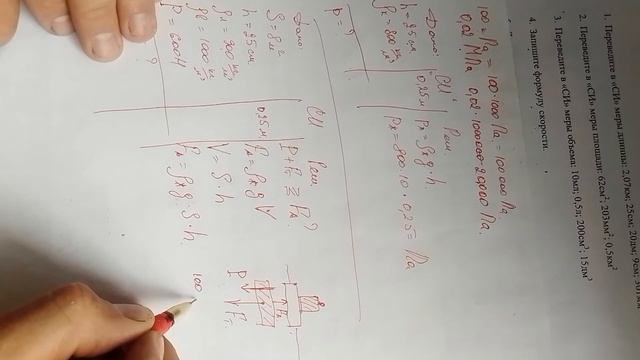 1. Переведите в «СИ» меры длинны: 2,07км; 25см; 20дм; 9см;
2. Переведите в «СИ» меры площади: 62см²; 203мм²; 0,5км²
3. Переведите в «СИ» меры объема: 10мл; 0,5л; 200см³; 15дм³
4. Запишите формулу скорости.
= 100·1000 Па = 100 000 Па.
0,02 МПа 0,02·1000000=20000 Па.
Дано: СИ Реш.
h = 25см 0,25м Pж = ρж g·h
Pж = 800·10·0,25= Па
p = ?
Дано: СИ Реш.
P + Fт ≥ FA?
h = 25см 0,25м FA = ρж g V
V = S·h
FA = ρж g·S·h
P = 600Н
?
P Fт
100